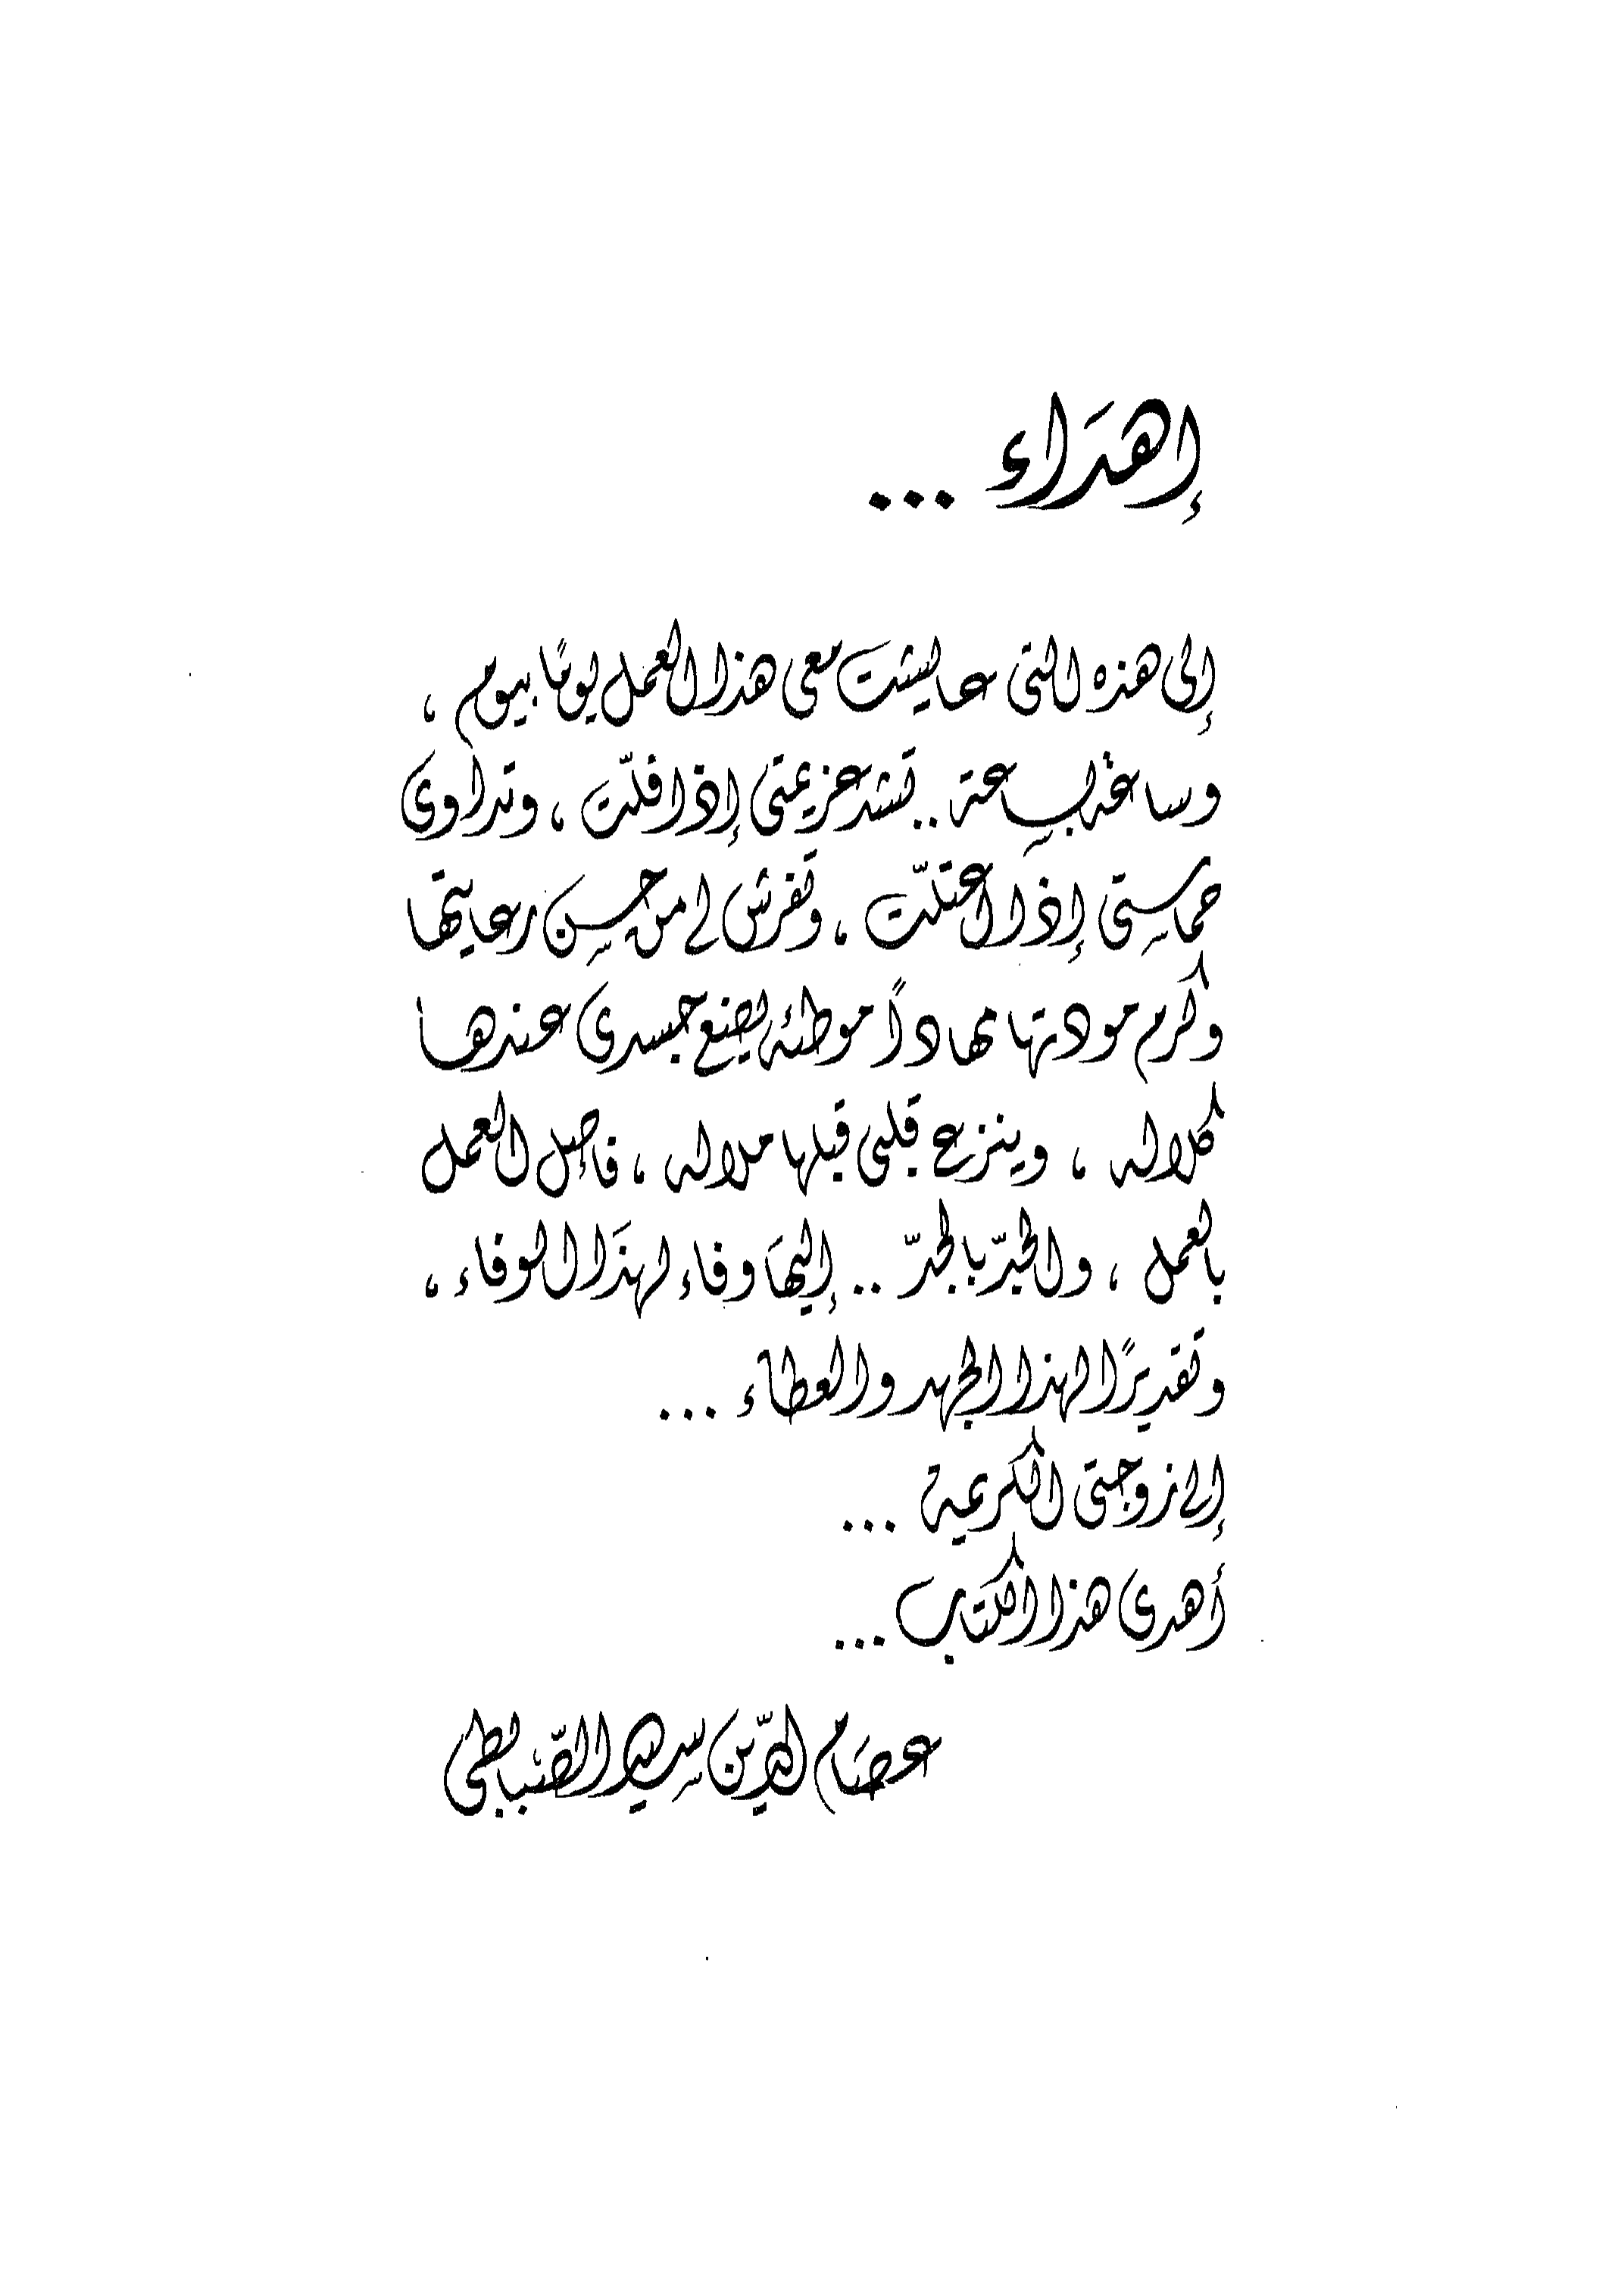 إهدَاء ...
إلى هذه التى عايشت معى هذا العمل يومًا بيوم ،
وساعة بساعة .. تشد عزيمتى إذا فلّت ، وتداوى
حماستى إذا اعتلّت ، وتفرش لى من حسن رعايتها
وكرم مودتها مهادًا موطئه يضع جسدى عندها
كلاله ، وينزع قلبى قبلها ملاله ، فأصل العمل
بالعمل ، والجدّ بالجدّ .. إليهَا وفاء لهذَا الوفاء ،
وتقديرًا لهذا الجهد والعطاء ...
إلى زوجتى الكريمة ...
أهدى هذا الكتاب ...
عصَام الدّين سيد الصّبابطى